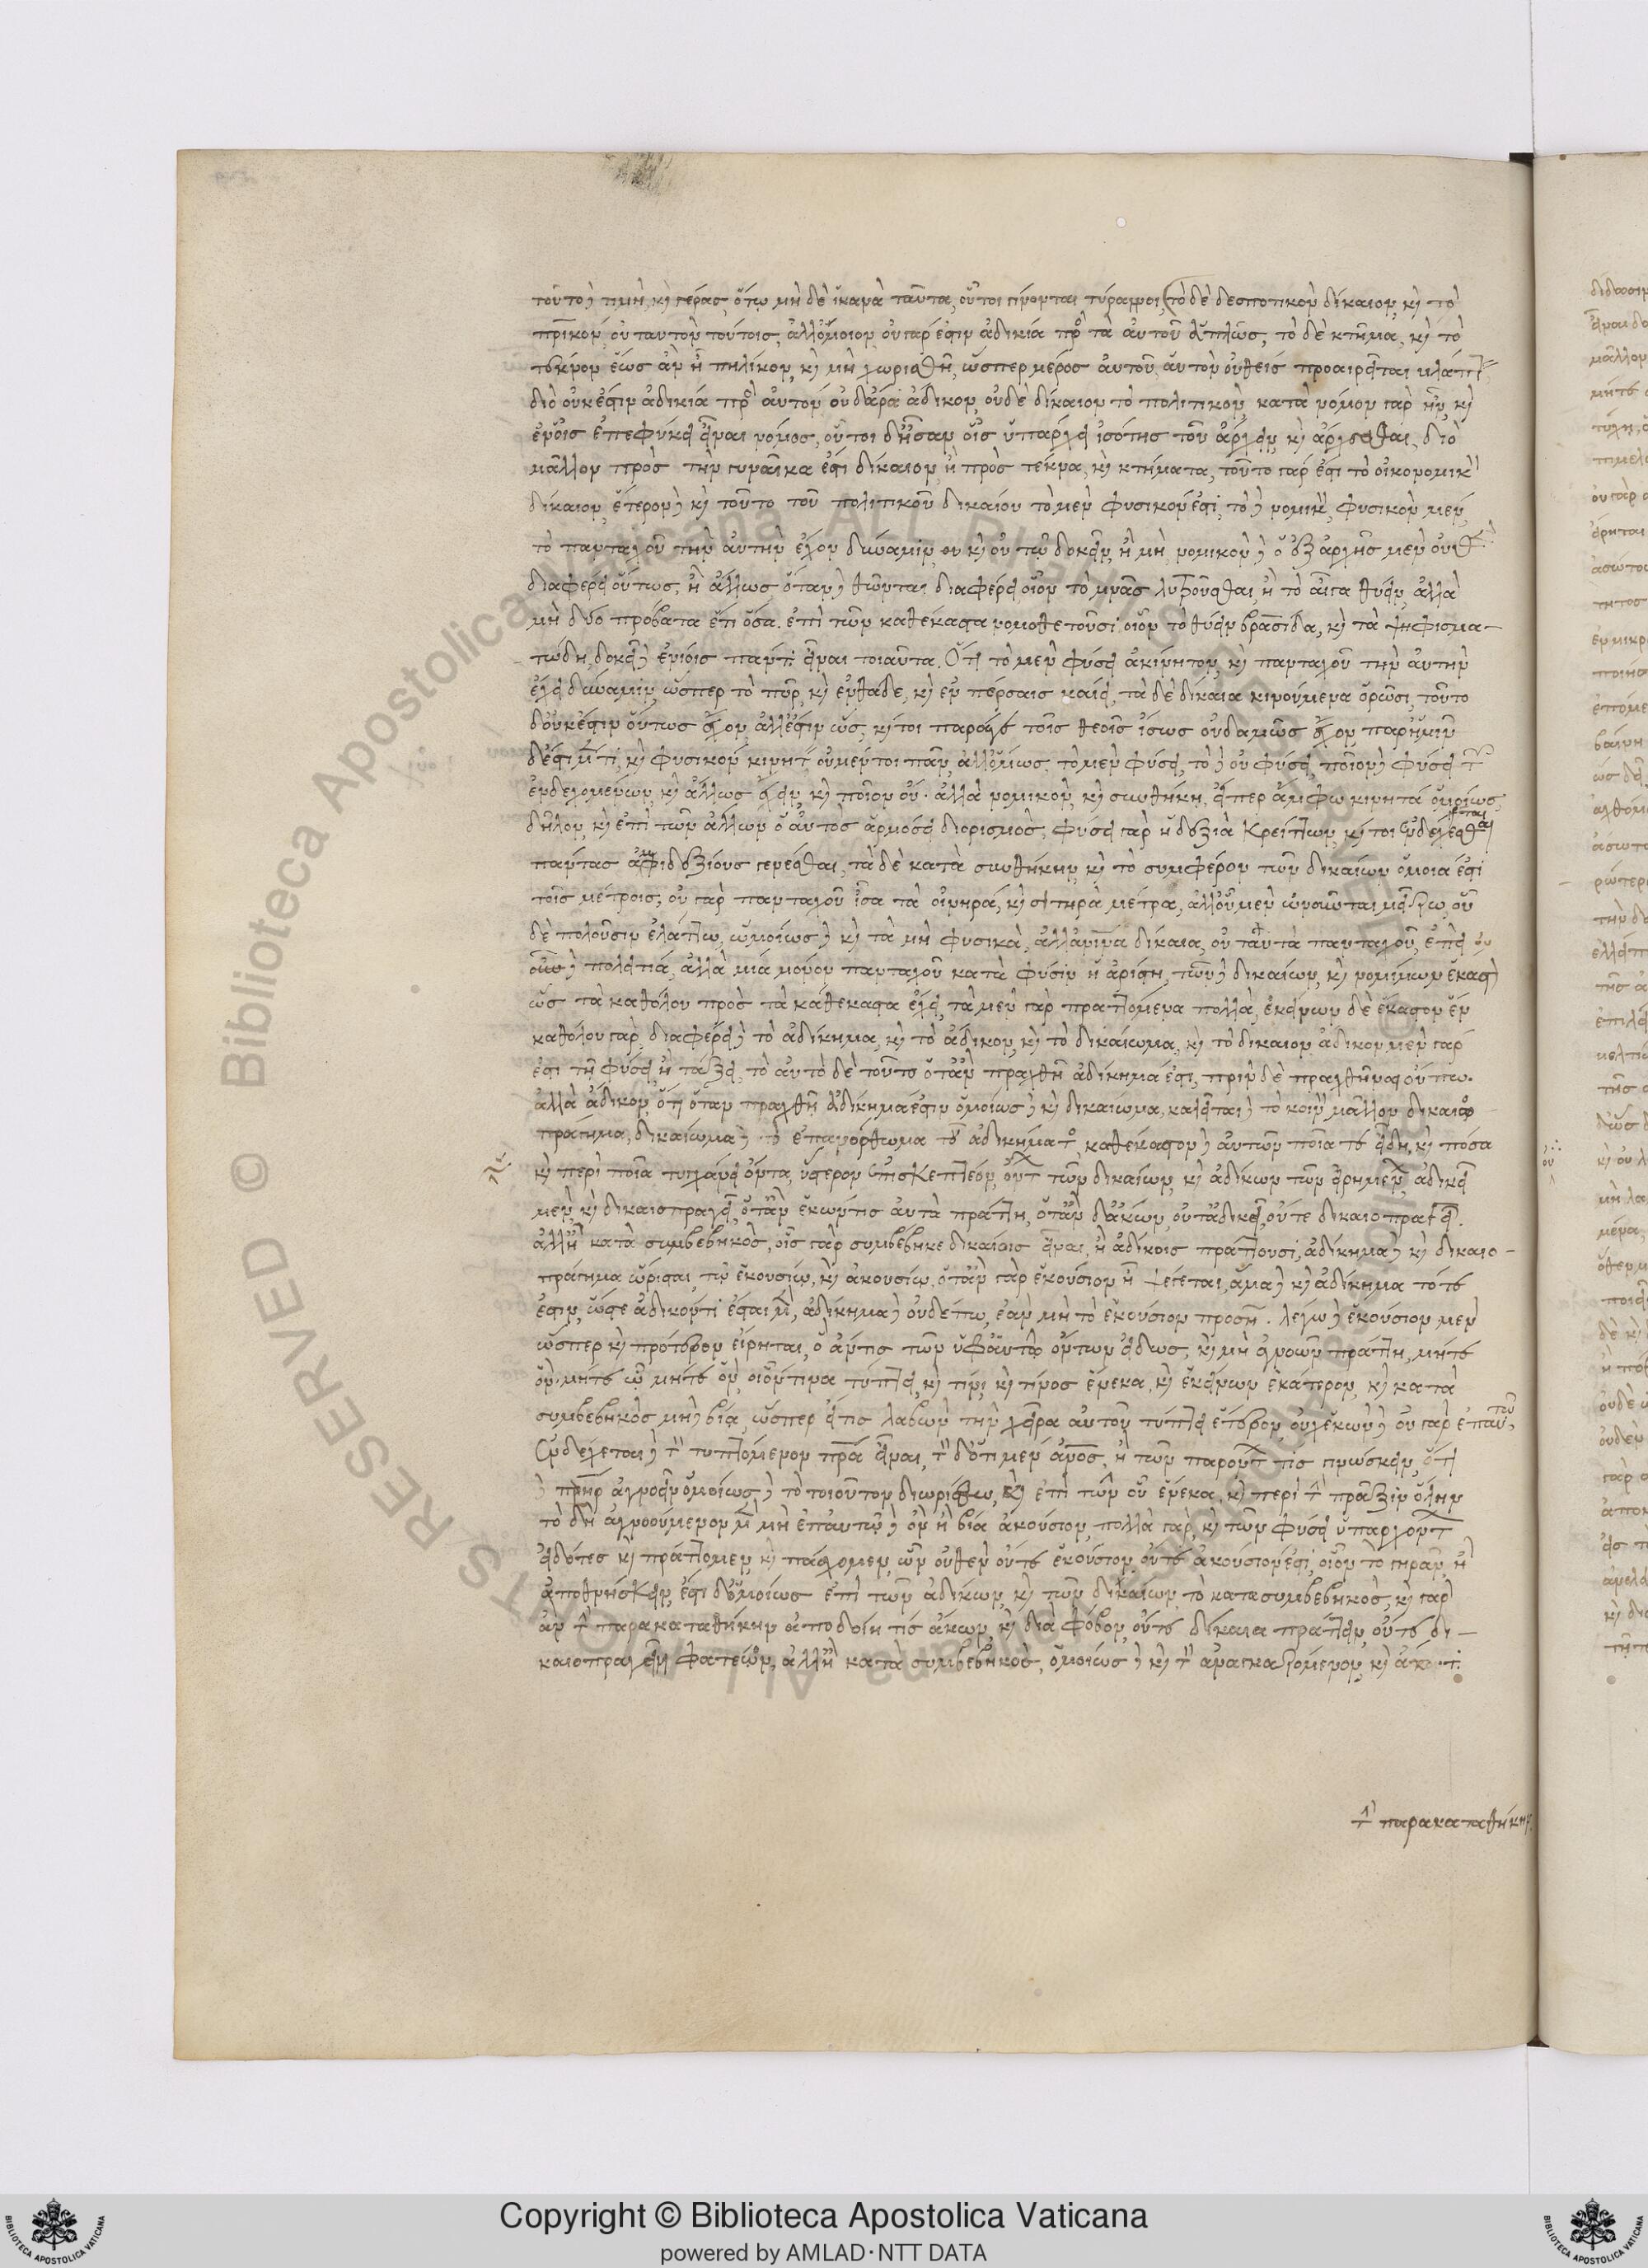 τοῦτο δὲ τιμὴ, καὶ γέρας, ὅτῳ μὴ δὲ ἱκανὰ ταῦτα, οὗτοι γίνονται τύραννοι, τὸ δὲ δεσποτικὸν δίκαιον, καὶ τὸ
πρικὸν, οὐ ταυτὸν τούτοις, ἀλλ' ὅμοιον, οὐ γάρ ἐστιν ἀδικία πρὸς τὰ αὐτοῦ ἁπλῶς, τὸ δὲ κτῆμα, καὶ τὸ
τέκνον ἕως ἂν ᾖ πηλίκον, καὶ μὴ χωρισθῇ, ὥσπερ μέρος αὐτοῦ, αὑτὸν οὐθεὶς προαιρεῖται βλάπτειν
διὸ οὐκ ἔστιν ἀδικία πρὸς αὑτόν, οὐδ' ἄρα ἄδικον, οὐδὲ δίκαιον τὸ πολιτικὸν, κατὰ νόμον γὰρ ἦν, καὶ
ἐν οἷς ἐπεφύκει εἶναι νόμος, οὗτοι δ' ἦσαν οἷς ὑπάρχει ἰσότης τοῦ ἄρχειν, καὶ ἄρχεσθαι, διὸ
μᾶλλον πρὸς τὴν γυναῖκα ἐστὶ δίκαιον, ἢ πρὸς τέκνα, καὶ κτήματα, τοῦτο γάρ ἐστι τὸ οἰκονομικὸν
δίκαιον, ἕτερον δὲ καὶ τοῦτο τοῦ πολιτικοῦ δικαίου τὸ μὲν φυσικόν ἐστι, τὸ δὲ νομικὸν, φυσικὸν μὲν,
τὸ πανταχοῦ τὴν αὐτὴν ἔχον δύναμιν, καὶ οὐ τῷ δοκεῖν, ἢ μὴ, νομικὸν δὲ ὃ ἐξ ἀρχῆς μὲν οὐθὲν
διαφέρει οὕτως, ἢ ἄλλως, ὅταν δὲ θῶνται διαφέρει, οἷον τὸ μνᾶς λυτροῦσθαι, ἢ τὸ αἶγα θύειν, ἀλλὰ
μὴ δύο πρόβατα ἔτι ὅσα ἐπὶ τῶν καθέκαστα νομοθετοῦσι, οἷον τὸ θύειν βρασίδα, καὶ τὰ ψηφισμα-
τώδη, δοκεῖ δὲ ἐνίοις πάντα εἶναι τοιαῦτα. Ὅτι τὸ μὲν φύσει ἀκίνητον, καὶ πανταχοῦ τὴν αὐτὴν
ἔχει δύναμιν, ὥσπερ τὸ πῦρ, καὶ ἐνθάδε, καὶ ἐν πέρσαις καίει, τὰ δὲ δίκαια κινούμενα ὁρῶσι, τοῦτο
δ' οὐκ ἔστιν οὕτως ἔχον, ἀλλ' ἔστιν ὡς, καίτοι παρά γε τοῖς θεοῖς ἴσως οὐδαμῶς ἔχον, παρ' ἡμῖν
δ' ἔστι μέν τι, καὶ φυσικὸν κινητὸν οὐ μέντοι πᾶν, ἀλλ' ὅμως, τὸ μὲν φύσει, τὸ δὲ οὐ φύσει, ποῖον δὲ φύσει τῶν
ἐνδεχομένων, καὶ ἄλλως ἔχειν, καὶ ποῖον οὔ· ἀλλὰ νομικὸν, καὶ συνθήκη, εἴπερ ἄμφω κινητὰ ὁμοίως,
δῆλον, καὶ ἐπὶ τῶν ἄλλων ὁ αὐτὸς ἁρμόσει διορισμὸς, φύσει γὰρ ἡ δεξιὰ κρείττων, καίτοι ἐνδέχεσθαι
πάντας ἀμφιδεξίους γενέσθαι, τὰ δὲ κατὰ συνθήκην, καὶ τὸ συμφέρον τῶν δικαίων ὅμοιά ἐστι
τοῖς μέτροις, οὐ γὰρ πανταχοῦ ἴσα τὰ οἰνηρά, καὶ σιτηρὰ μέτρα, ἀλλ' οὗ μὲν ὠνοῦνται μείζω, οὗ
δὲ πωλοῦσιν ἐλάττω, ὁμοίως δὲ καὶ τὰ μὴ φυσικὰ, ἀλλ' ἀνθρώπινα δίκαια, οὐ ταὐτὰ πανταχοῦ, ἐπεὶ οὐ
δὲ πολιτεία, ἀλλὰ μία μόνον πανταχοῦ κατὰ φύσιν ἡ ἀρίστη, τῶν δὲ δικαίων, καὶ νομίμων ἕκαστον
ὡς τὰ καθόλου πρὸς τὰ καθέκαστα ἔχει, τὰ μὲν γὰρ πραττόμενα πολλὰ, ἐκείνων δὲ ἕκαστον ἓν
καθόλου γὰρ, διαφέρει δὲ τὸ ἀδίκημα, καὶ τὸ ἄδικον, καὶ τὸ δικαίωμα, καὶ τὸ δίκαιον ἄδικον μὲν γάρ
ἐστι τῇ φύσει, ἢ τάξει, τὸ αὐτὸ δὲ τοῦτο ὅταν πραχθῇ ἀδίκημά ἐστι, πρὶν δὲ πραχθῆναι οὔπω.
ἀλλὰ ἄδικον, ὅτι ὅταν πραχθῇ ἀδίκημά ἐστιν ὁμοίως δὲ καὶ δικαίωμα, καλεῖται δὲ τὸ κοινὸν μᾶλλον δικαιο
πράγημα, δικαίωμα δὲ τὸ ἐπανόρθωμα τοῦ ἀδικήματος, καθέκαστον δὲ αὐτῶν ποῖά τε εἴδη, καὶ πόσα
καὶ περὶ ποῖα τυγχάνει ὄντα, ὕστερον ἐπισκεπτέον, ὄντων τῶν δικαίων, καὶ ἀδίκων τῶν εἰρημένων, ἀδικεῖ
μὲν, καὶ δικαιοπραγεῖ, ὅταν ἑκών τις αὐτὰ πράττῃ, ὅταν δ' ἄκων, οὔτ' ἀδικεῖ, οὔτε δικαιοπραγεῖ.
ἀλλ' ἢ κατὰ συμβεβηκὸς, οἷς γὰρ συμβέβηκε δικαίοις εἶναι, ἢ ἀδίκοις πράττουσι, ἀδίκημα δὲ καὶ δικαιο-
πράγημα ὥρισται τῷ ἑκουσίῳ, καὶ ἀκουσίῳ. ὅταν γὰρ ἑκούσιον ᾖ ψέγεται, ἅμα δὲ καὶ ἀδίκημα τότε
ἐστιν, ὥστε ἄδικόν τι ἔσται μὲν, ἀδίκημα δὲ οὐδέπω, ἐὰν μὴ τὸ ἑκούσιον προσῇ. λέγω δὲ ἑκούσιον μὲν
ὥσπερ καὶ πρότερον εἴρηται, ὃ ἄν τις τῶν ἐφ' αὑτῷ ὄντων εἰδὼς, καὶ μὴ ἀγνοῶν πράττῃ, μήτε
ὃν μήτε ᾧ μήτε ὃν, οἷον τίνα τύπτει, καὶ τίνι, καὶ τίνος ἕνεκα, καὶ ἐκείνων ἑκάτερον, καὶ κατὰ
συμβεβηκὸς μὴ δὲ βίᾳ, ὥσπερ εἴ τις λαβὼν τὴν χεῖρα αὐτοῦ τύπτει ἕτερον, οὐχ ἑκὼν δὲ οὐ γὰρ ἐπ' αὐτοῦ,
ἐνδέχεται δὲ τὸν τυπτόμενον πατέρα εἶναι, τὸν δ' ὅτι μὲν ἄνθρωπος, ἢ τῶν παρόντων τις γινώσκειν, ὅτι
δὲ πατὴρ ἀγνοεῖν ὁμοίως δὲ τὸ τοιοῦτον διωρίσθω, καὶ ἐπὶ τῶν οὗ ἕνεκα, καὶ περὶ τὴν πρᾶξιν ὅλην
τὸ δὴ ἀγνοούμενον μὴ ἐπ' αὐτῷ δὲ ὂν ἢ βίᾳ ἀκούσιον, πολλὰ γὰρ, καὶ τῶν φύσει ὑπαρχόντων
εἰδότες καὶ πράττομεν, καὶ πάσχομεν, ὧν οὐθὲν οὔτε ἑκούσιον, οὔτε ἀκούσιόν ἐστι, οἷον τὸ γηρᾶν, ἢ
ἀποθνήσκειν, ἔστι δ' ὁμοίως ἐπὶ τῶν ἀδίκων, καὶ τῶν δικαίων τὸ κατὰ συμβεβηκὸς, καὶ γὰρ
ἂν τὴν παρακαταθήκην ἀποδοίη τις ἄκων, καὶ διὰ φόβον, οὔτε δίκαια πράττειν, οὔτε δι-
καιοπραγεῖν φατέον, ἀλλ' ἢ κατὰ συμβεβηκὸς, ὁμοίως δὲ καὶ τὸν ἀναγκαζόμενον, καὶ ἄκοντα
τὴν παρακαταθήκην
Copyright © Biblioteca Apostolica Vaticana
powered by AMLAD·NTT DATA